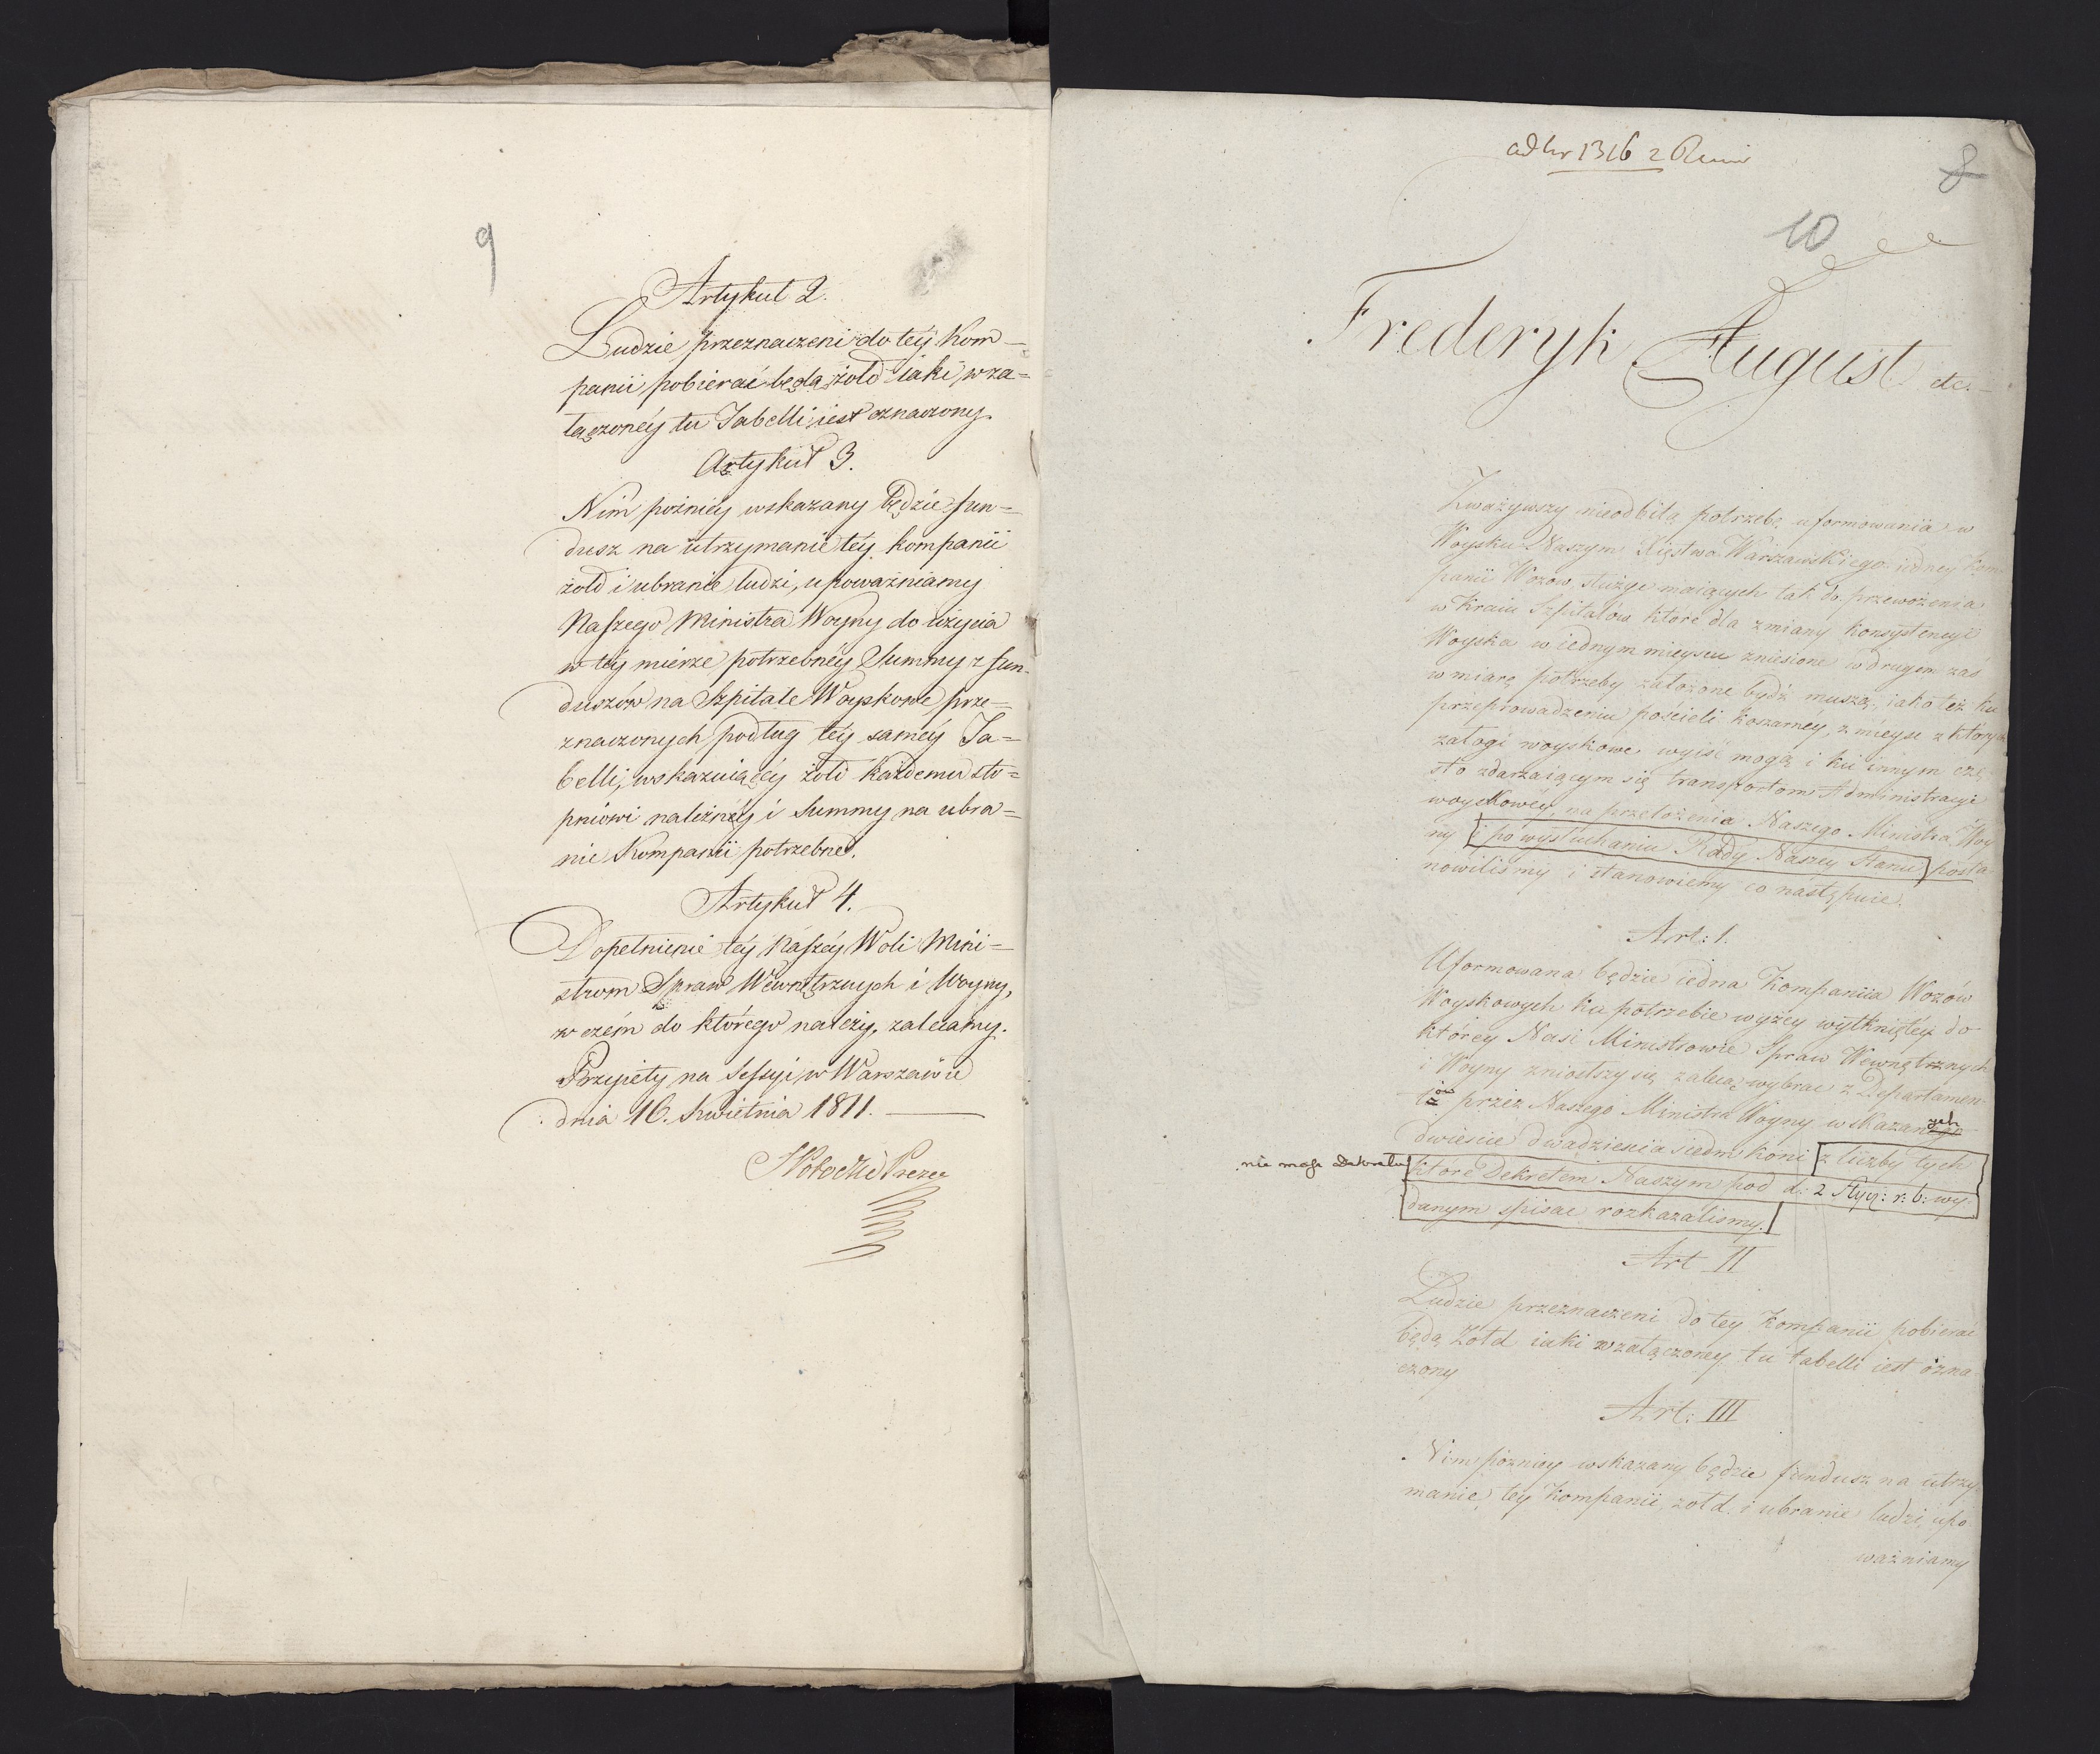 9
Artykuł 2.
Ludzie przeznaczeni do téy Kom-
panii pobierać będą żołd iaki w za=
łączonéy tu Tabelli iest oznaczony.
Artykuł 3.
Nim pozniéy wskazany będzie fun=
dusz na utrzymanie téy kompanii
żołd i ubranie ludzi, upoważniamy
Naszego Ministra Woyny do użycia
w téy mierze potrzebnéy Summy z fun-
duszów na Szpitale Woyskowe prze=
znaczonych podług téy saméy Ta=
belli, wskazuiącéy żołd każdemu sto=
pniowi należnéy i Summy na ubra=
nie Kompanii potrzebne.
Artykuł 4.
Dopełnienie téy Naszéy Woli Mini=
strom Spraw Wewnętrznych i Woyny,
w czém do którego należy, zalecamy.
Przyięty na Sessyi w Warszawie
dnia 16. Kwietnia 1811.
S Potocki Prezes
ad Nr 1316 z
8
10
Frederyk August etc.
Zważywszy nieodbitą potrzebę uformowania w
Woysku Naszym Xięstwa Warszawskiego iedney Kom
panii Wozów, służyć maiących tak do przewożenia
w Kraiu Szpitalów które dla zmiany konsystencyi
Woyska w iednym mieyscu zniesione w drugim zaś
w miarę potrzeby założone bydź muszą, iako też ku
przeprowadzeniu pościeli koszarnéy, z mieysc z których
załogi woyskowe wyiść mogą i ku innym czę
sto zdarzaiącym się transportom Administracyi
woyskowéy, na przełożenia Naszego Ministra Woy
ny i po wysłuchaniu Rady Naszey Stanu posta
nowiliśmy i stanowiemy co następuie.
Art: 1.
Uformowana będzie iedna Kompaniia Wozów
Woyskowych ku potrzebie wyżey wytkniętéy do
którey Nasi Ministrowie Spraw Wewnętrznych
i Woyny zniosłszy się zalecą wybrać z Departamen
tów przez Naszego Ministra Woyny wskazanych
dwieście dwadzieścia siedm koni z liczby tych
nie masz Dekretu
które Dekretem Naszym pod d: 2 Stycz: r: b: wy
danym spisać rozkazaliśmy.
Art II
Ludzie przeznaczeni do tey Kompanii pobierać
będą żołd iaki w załączoney tu tabelli iest ozna
czony
Art: III
Nim pozniey wskazany będzie fundusz na utrzy
manie tey Kompanii, żołd i ubranie ludzi, upo
ważniamy